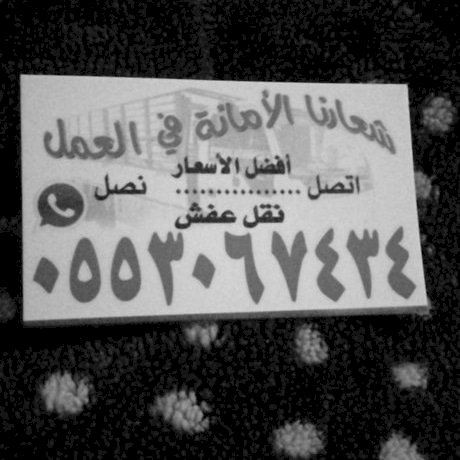 شعارنا الأمانة في العمل
أفضل الأسعار
اتصل ................ نصل
نقل عفش
٠٥٥٣٠٦٧٤٣٤